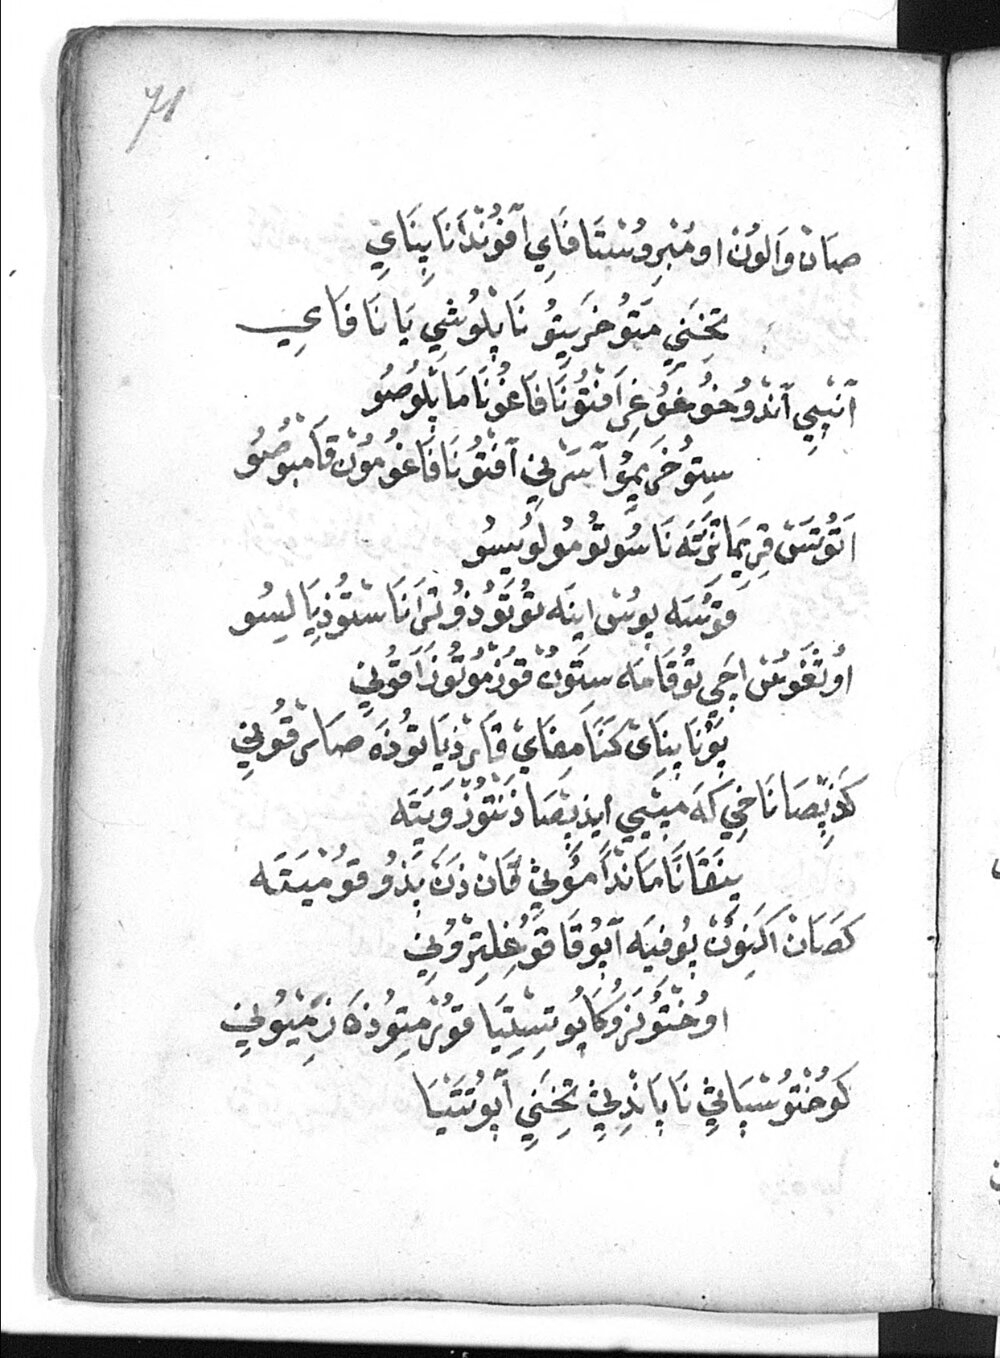 71
صَانْ وَالُونْ اومْبِروُسْتَا فَايِ آفوُنْدَانَا پِنَايِ
تَخِنِي مَتوُخَرِيتوُ نَاپْلوُشِي يَا نَا فَاىِ
آنْپِي آنْدوُخوُ غوُغِرَافْتوُنَا فَاغوُنَا مَاپْلوُصوُ
سِتوُخَرِيموُ آسَرْنِي آفْتوُنَا فَاغوُموُنْ قَامْپوُصوُ
اَتوُتَسْ قِرِيمَاتَرْتَه نَاسوُتوُموُلوُيِسوُ
قوُسَه پوُسْ اينَه توُتوُذوُتْرَانَا سْتوُذِيَالِسوُ
اوُتْغوُسْ اچِي توُقَامَه سِتوُنْ قوُزْموُتوُزَاقوُنِي
پوُنَاپِنَاىْ كَنَامِفَايْ قَارْذِيَاتوُذَه صَارْقوُنِي
كَذِپْصَانَاخِي كَه مَيپِي ايذِپْصَاذَنْتوُزْوَيتَه
پِنَقَانَامَانْدَاموُنِي قَانْ ذَنْ پَذوُ قوُمْيتَه
كَصَانْ اَكَنوُنْ پوُفِيَه آپوُقَاقوُغْلِتِرْوُنِي
اوُخْتوُكَزوُكَاپوُتِسِلِتِيَا قوُرْمِتوُذَكَا زِمْيوُنِي
كوُخْتوُسْپَانِي نَاپَانْدِنِي تَخِنِي آپوُتَتْيَا